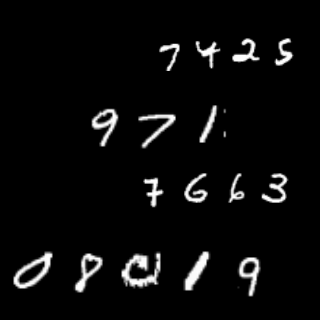 7425
971
7663
08019